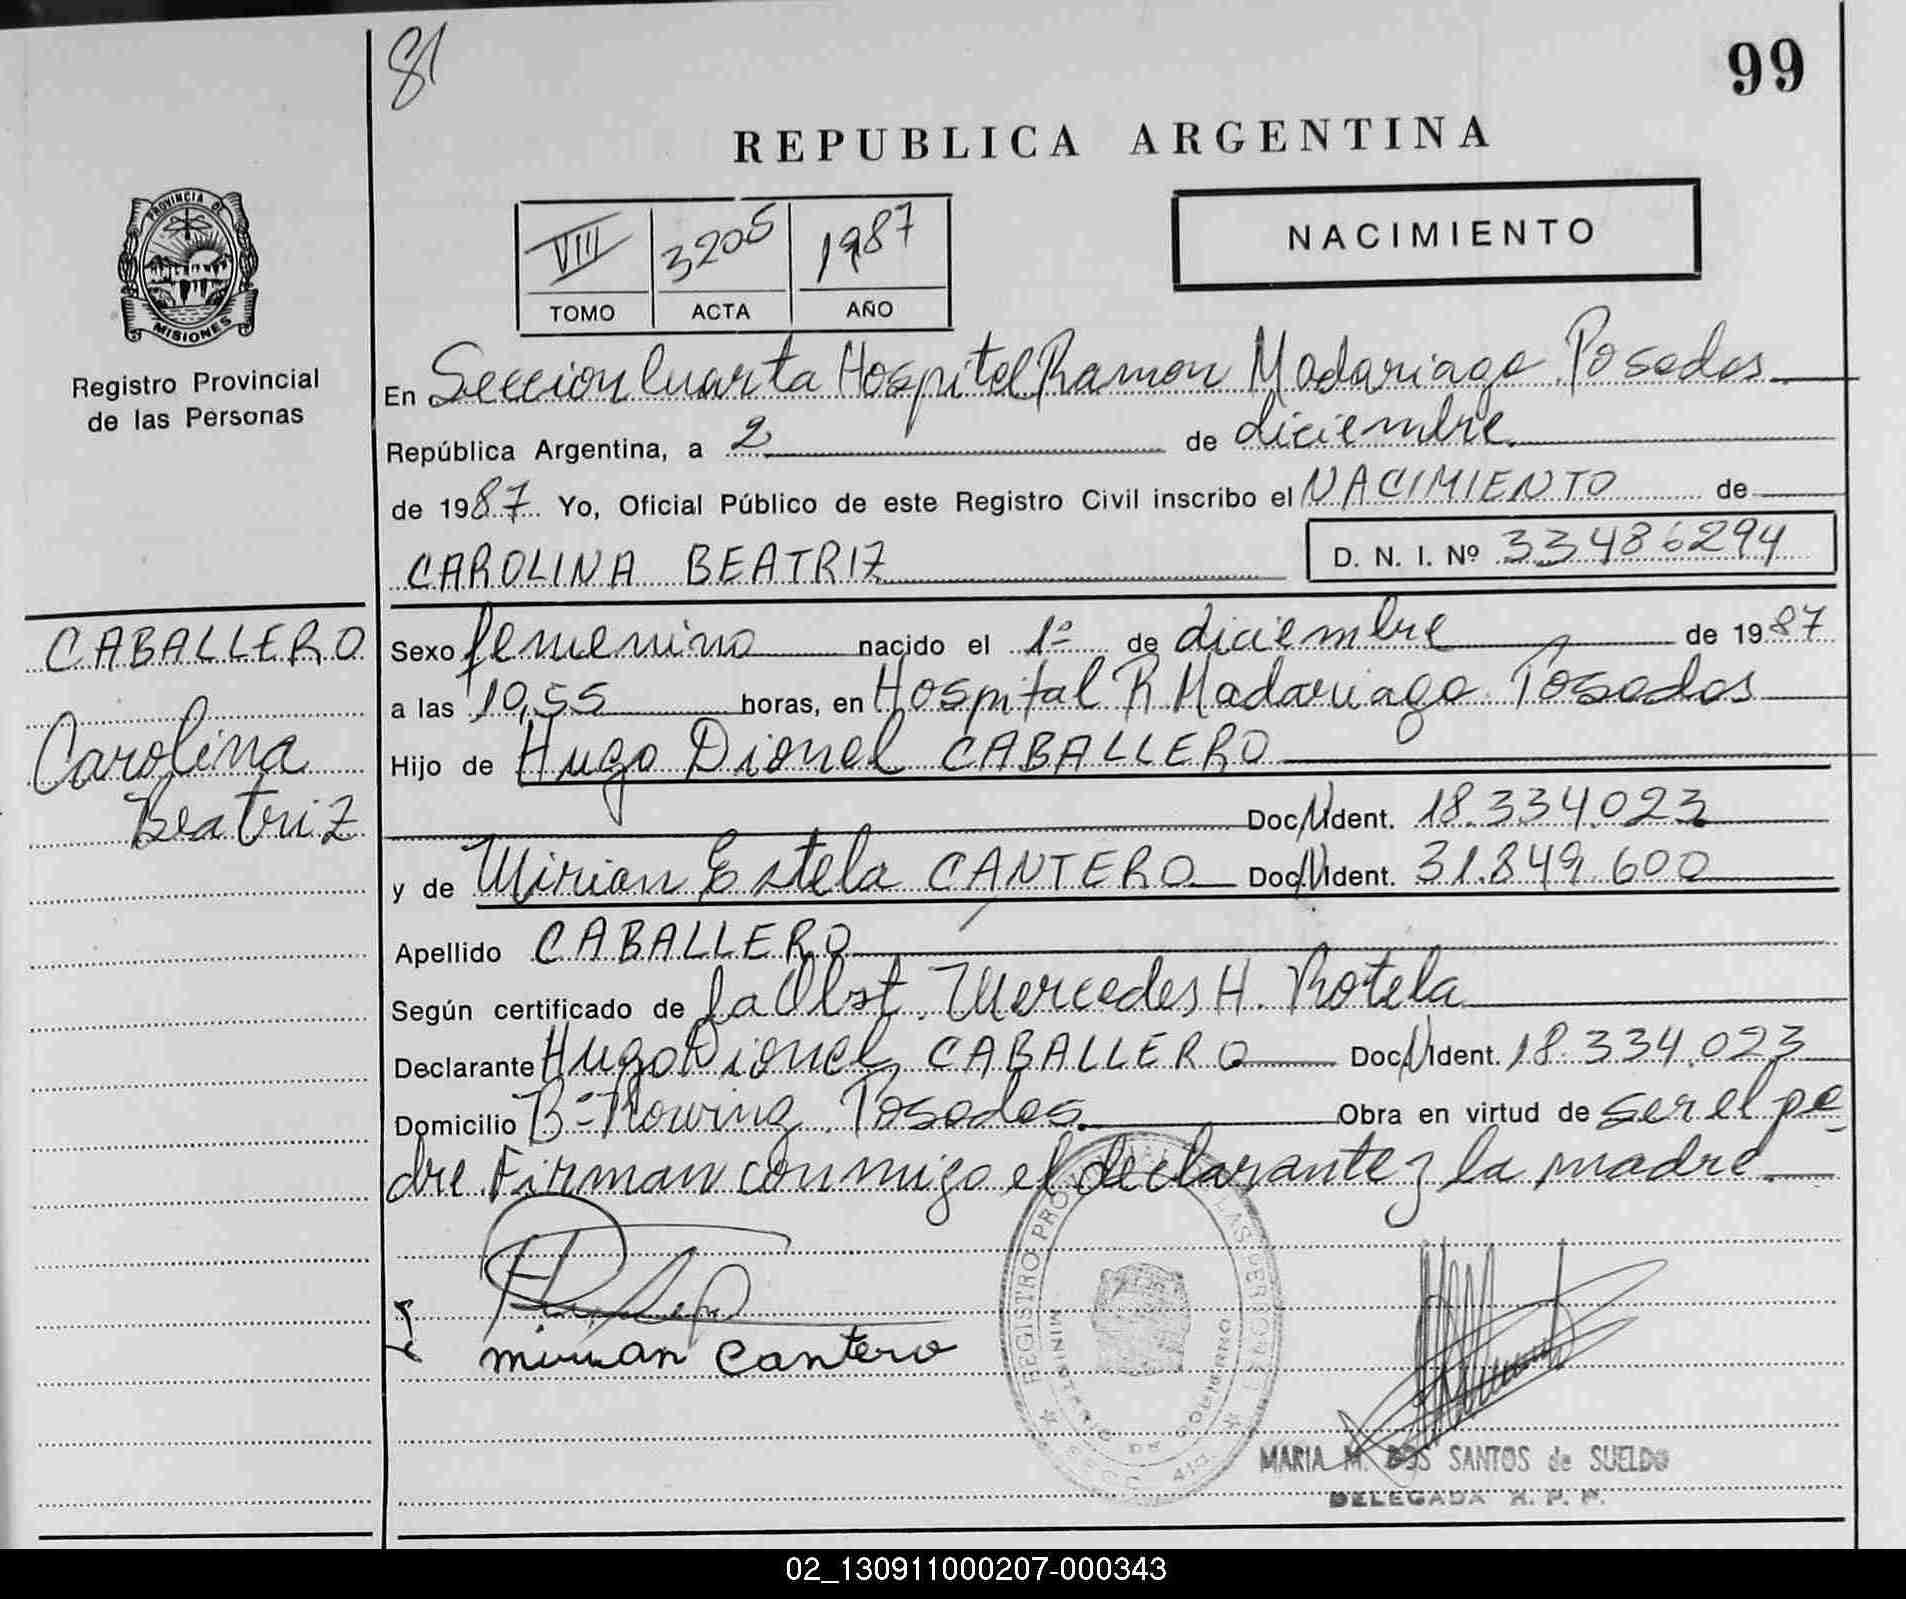 81
99
REPUBLICA ARGENTINA
PROVINCIA DE
MISIONES
Registro Provincial
de las Personas
VIII 3205 1987
TOMO ACTA AÑO
NACIMIENTO
En Seccion Cuarta Hospital Ramon Madariaga Posadas
República Argentina, a 2 de diciembre
de 1987 Yo, Oficial Público de este Registro Civil inscribo el NACIMIENTO de
CAROLINA BEATRIZ D. N. I. Nº 33486294
CABALLERO
Carolina
Beatriz
Sexo femenino nacido el 1º de diciembre de 1987
a las 10,55 horas, en Hospital R Madariaga Posadas
Hijo de Hugo Dionel CABALLERO
Doc. Ident. 18.334.023
y de Mirian Estela CANTERO Doc. Ident. 31.849.600
Apellido CABALLERO
Según certificado de la Obst. Mercedes H. Rotela
Declarante Hugo Dionel CABALLERO Doc. Ident. 18.334.023
Domicilio Bº Rowing Posadas Obra en virtud de ser el pa-
dre. Firman conmigo el declarante y la madre
mirian cantero
REGISTRO PROVINCIAL DE LAS PERSONAS
MINISTERIO DE GOBIERNO
MARIA M. DOS SANTOS de SUELDO
DELEGADA R. P. P.
02_130911000207-000343